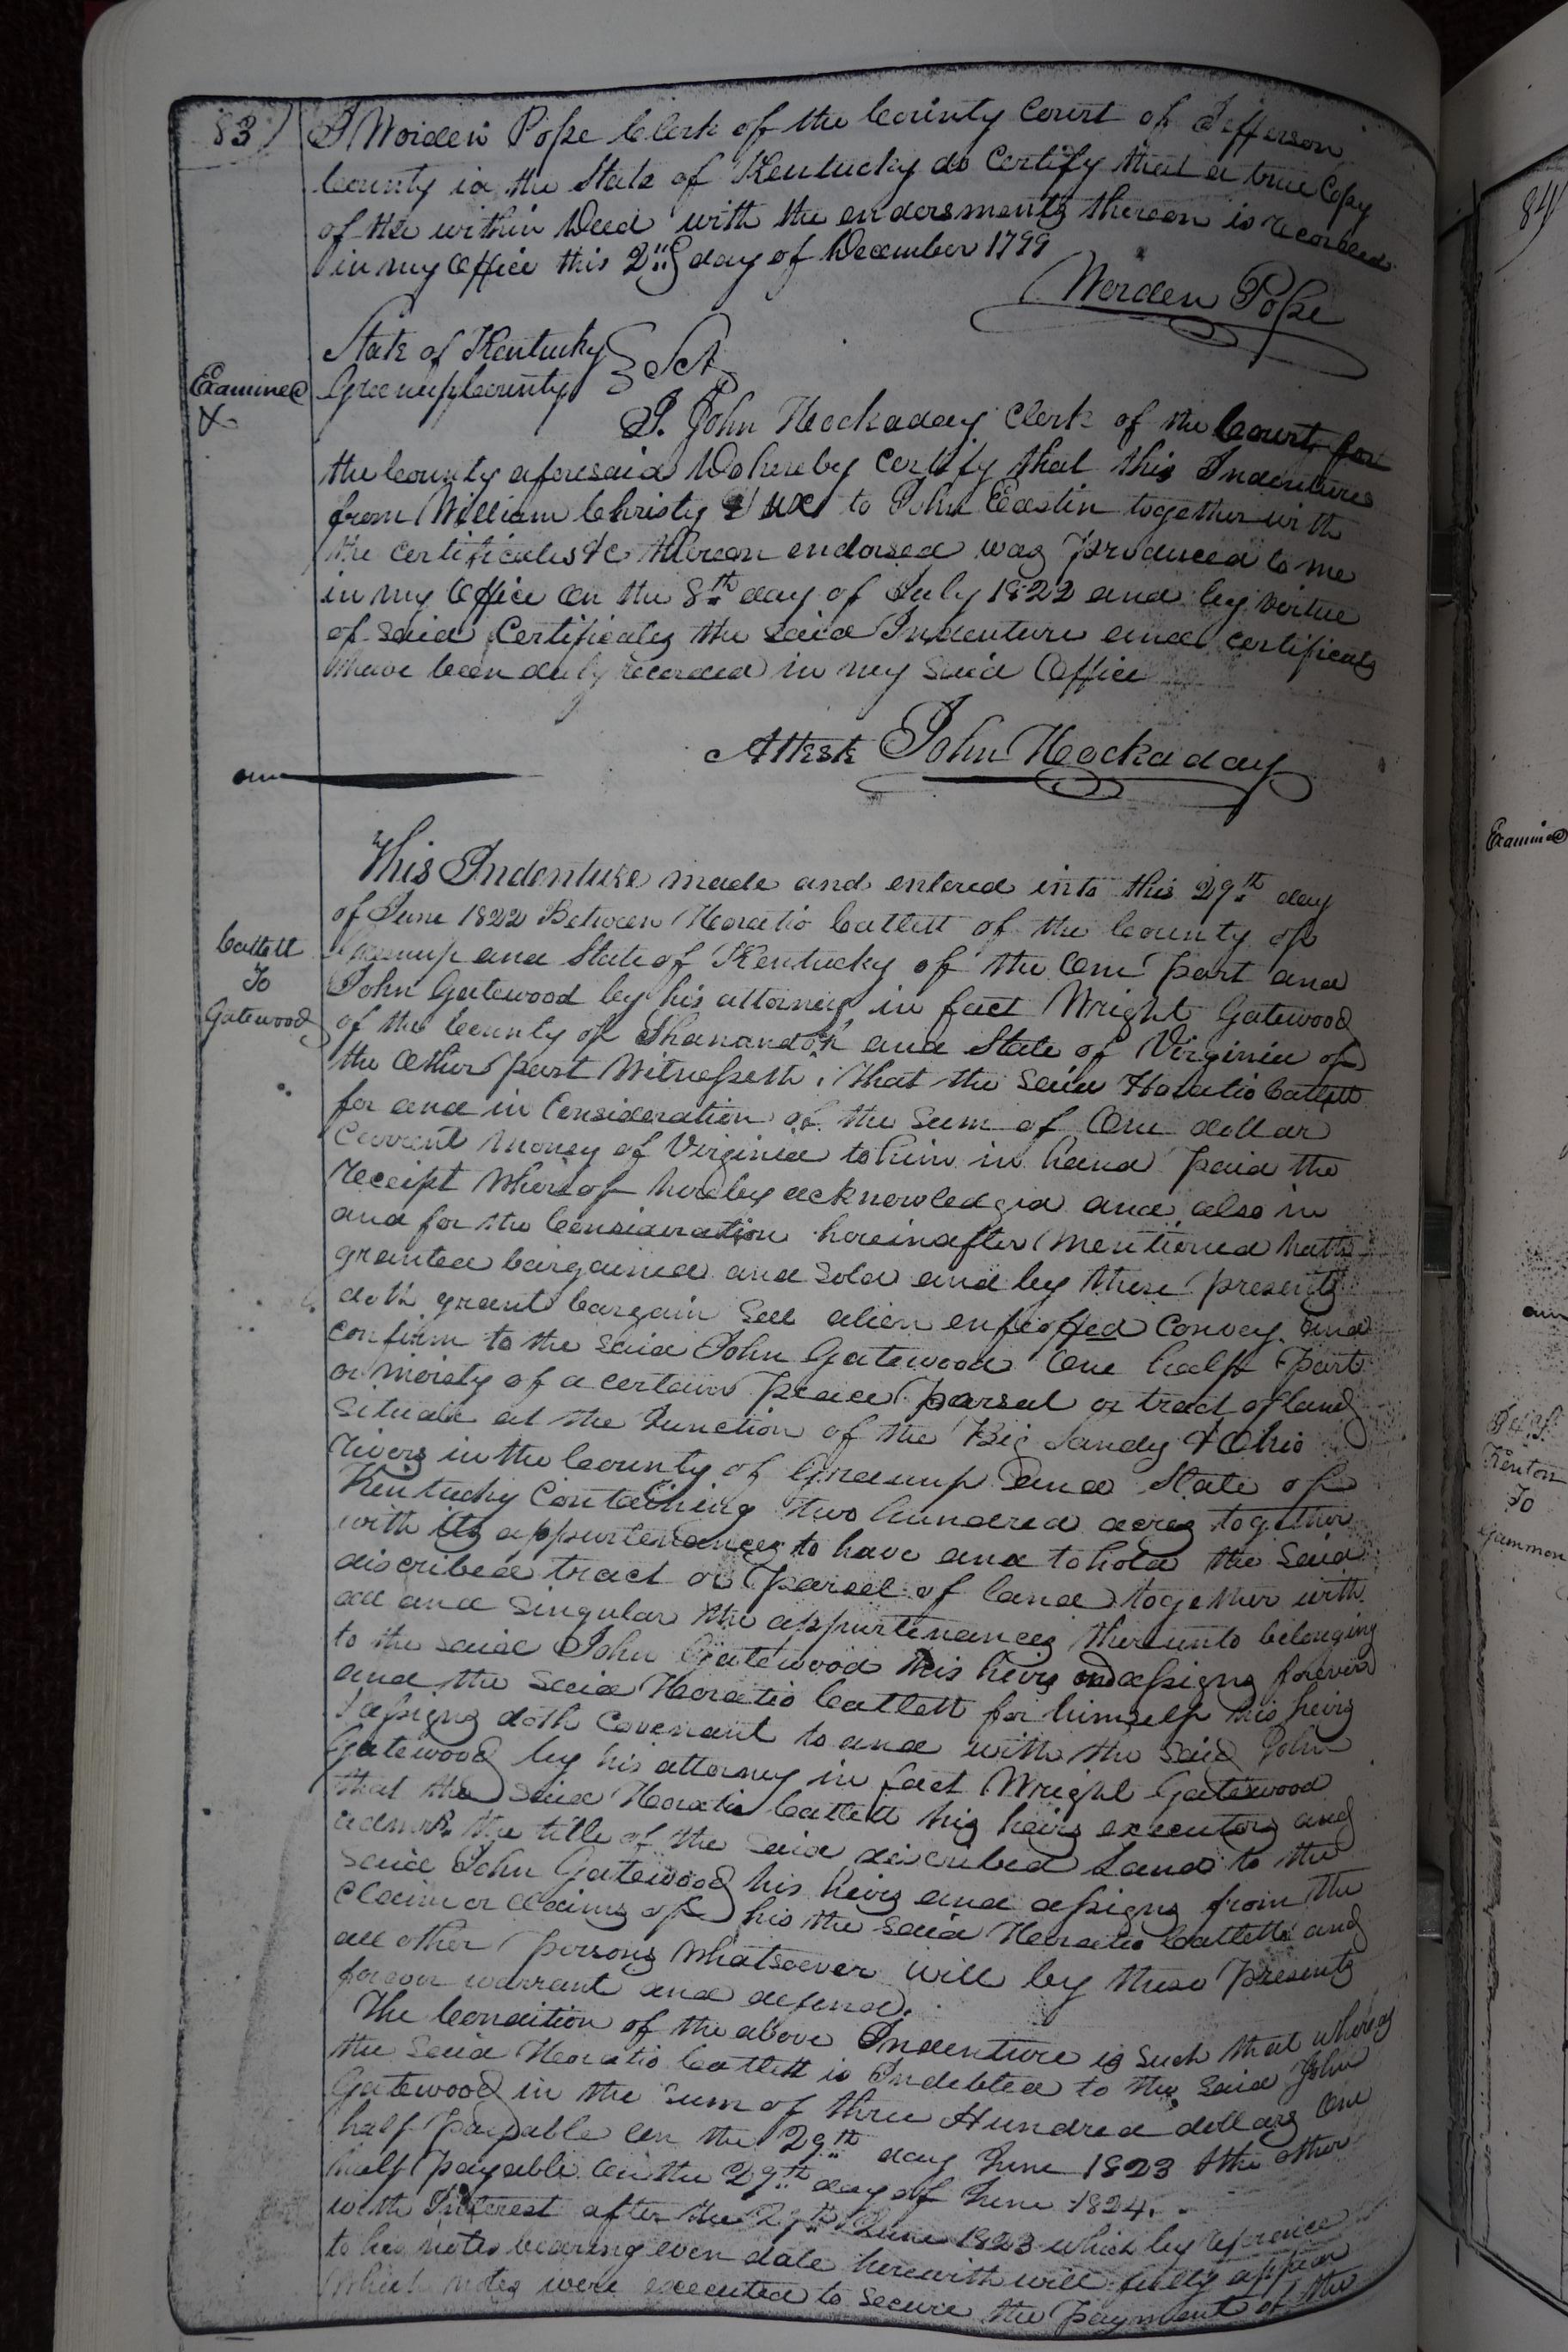 83)
I Worden Pope Clerk of the County Court of Jefferson
County in the State of Kentucky do Certify that a true Copy
of the within Deed with the endorsments thereon is recorded
in my Office this 2nd day of December 1799
Worden Pope
State of Kentucky
Greenup County } Sct
Examined
I. John Hockaday Clerk of the Court for
the County aforesaid Do hereby Certify that this Indenture
from William Christy & ux to John Eastin together with
the certificates &c thereon endorsed was produced to me
in my Office on the 8th day of July 1822 and by virtue
of said Certificates the said Indenture and certificates
have been duly recorded in my said Office
Attest John Hockaday
This Indenture made and entered into this 29th day
of June 1822 Between Horatio Catlett of the County of
Catlett
To
Gatewood
Greenup and State of Kentucky of the One part and
John Gatewood by his attorney in fact Wright Gatewood
of the County of Shanandoh and State of Virginia of
the Other part Witnesseth, That the said Horatio Catlett
for and in Consideration of the Sum of One dollar
Current Money of Virginia to him in hand paid the
receipt Whereof hereby acknowledgid and also in
and for the Consideration hereinafter Mentioned hath
granted bargained and sold and by these presents
doth grant bargain Sell alien enfeoffed Convey and
confirm to the said John Gatewood One half part
or moiety of a certain peace parsal or tract of land
Situate at the Junction of the Big Sandy & Ohio
rivers in the County of Greenup and State of
Kentucky Containing two hundred acres together
with its appurtenances to have and to hold the Said
discribed tract or parcel of land together with
all and singular the appurtenances thereunto belonging
to the said John Gatewood his heirs and assigns forever
and the said Horatio Catlett for himself his heirs
& assigns doth Covenant to and with the said John
Gatewood by his attorney in fact Wright Gatewood
that the said Horatio Catlett his heirs executors and
admrs. the title of the said discribed Land to the
said John Gatewood his heirs and assigns from the
Claim or Claims of his the said Horatio Catlett and
all other persons Whatsoever will by these presents
forever warrant and defend.
The Condition of the above Indenture is such that whereas
the said Horatio Catlett is Indebted to the said John
Gatewood in the sum of three Hundred dollars One
half payable on the 29th day June 1823 & the other
half payable On the 29th day of June 1824.
with Interest after the 29th June 1823 which by refrence
to his notes bearing even date herewith will fully appear
Which notes were executed to secure the payment of the
84
Examined
Kenton
To
Gammon